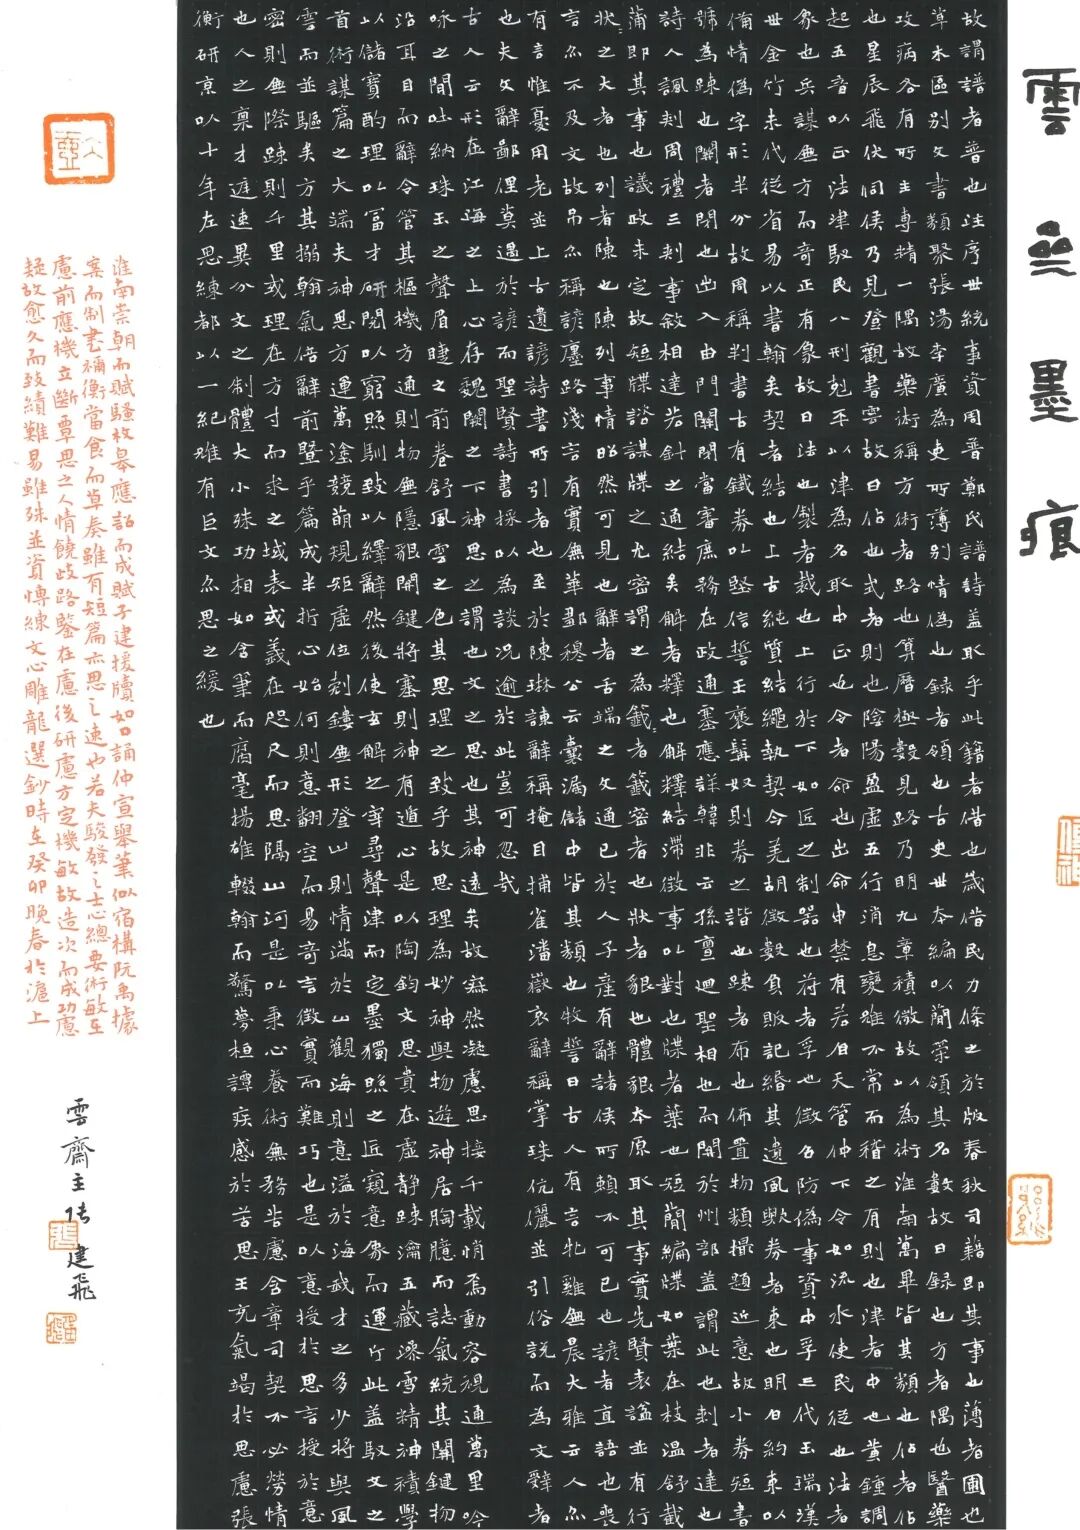 雲 墨痕
故謂譜者普也注序世統事資周普鄭氏譜詩蓋取乎此籍者借也歲借民力條之於版春秋司籍即其事也薄者圃也
草木區別文書類聚張湯李廣為吏所薄別情偽也録者領也古史世本編以簡策領其名數故曰録也方者隅也醫藥
攻病各有所主專精一隅故藥術稱方術者路也算曆極數見路乃明九章積微故以為術淮南萬畢皆其類也佔者佔
也星辰飛伏伺侯乃見登觀書雲故曰佔也式者則也陰陽盈虛五行消息變雖不常而稽之有則也津者中也黃鍾調
起五音以正法津馭民八刑剋平以津為名取中正也令者命也出命申禁有若自天管仲下令如流水使民從也法者
象也兵謀無方而奇正有象故曰法也製者裁也上行於下如匠之制器也符者孚也徵召防偽事資中孚三代玉瑞漢
世金竹末代從省易以書翰矣契者結也上古純質結繩執契今羌胡徵數負販記緡其遺風歟券者束也明白約束以
備情偽字形半分故周稱判書古有鐵券以堅信誓王褒髯奴則券之諧也疎者布也佈置物類撮題近意故小券短書
號為疎也關者閉也出入由門關閉當審庶務在政通塞應詳韓非云孫亶迴聖相也而關於州部蓋謂此也刺者達也
詩人諷刺周禮三刺事敘相達若針之通結矣解者釋也解釋結滯徵事以對也牒者葉也短簡編牒如葉在枝溫舒截
蒲即其事也議政未定故短牒諮謀牒之尤密謂之為籤者籤密者也狀者貌也體貌本原取其事實先賢表謚並有行
狀之大者也列者陳也陳列事情昭然可見也辭者舌端之文通已於人子產有辭諸侯所賴不可已也諺者直語也喪
言亦不及文故吊亦稱諺廛路淺言有實無華鄒穆公云囊漏儲中皆其類也牧誓曰古人有言牝雞無晨大雅云人亦
有言惟憂用老並上古遺諺詩書所引者也至於陳琳諫辭稱掩目捕雀潘嶽哀辭稱掌珠伉儷並引俗說而為文辭者
也夫文辭鄙俚莫過於諺而聖賢詩書採以為談況逾於此豈可忽哉
古人云形在江海之上心存魏闕之下神思之謂也文之思也其神遠矣故寂然凝慮思接千載悄焉動容視通萬里吟
咏之間吐納珠玉之聲眉睫之前卷舒風雲之色其思理之致乎故思理為妙神與物遊神居胸臆而誌氣統其關鍵物
沿耳目而辭令管其樞機方通則物無隱貌關鍵將塞則神有遁心是以陶鈞文思貴在虛静疎瀹五藏澡雪精神積學
以儲寶酌理以富才研閱以窮照馴致以繹辭然後使玄解之宰尋聲津而定墨獨照之匠窺意象而運斤此蓋馭文之
首術謀篇之大端夫神思方運萬塗競萌規矩虛位刻鏤無形登山則情滿於山觀海則意溢於海我才之多少將與風
雲而並驅矣方其搦翰氣倍辭前暨乎篇成半折心始何則意翻空而易奇言徵實而難巧也是以意授於思言授於意
密則無際疎則千里或理在方寸而求之域表或義在咫尺而思隔山河是以秉心養術無務苦慮含章司契不必勞情
也人之稟才遲速異分文之制體大小殊功相如含筆而腐毫揚雄輟翰而驚夢桓譚疾感於苦思王充氣竭於思慮張
衡研京以十年左思練都以一紀雖有巨文亦思之緩也
淮南崇朝而賦騷枚皋應詔而成賦子建援牘如口誦仲宣舉筆似宿構阮禹據
案而制書禰衡當食而草奏雖有短篇亦思之速也若夫駿發之士心總要術敏在
慮前應機立斷覃思之人情饒歧路鑒在慮後研慮方定機敏故造次而成功慮
疑故愈久而致績難易雖殊並資博練文心雕龍選鈔時在癸卯晚春於滬上
雲齋主張建飛